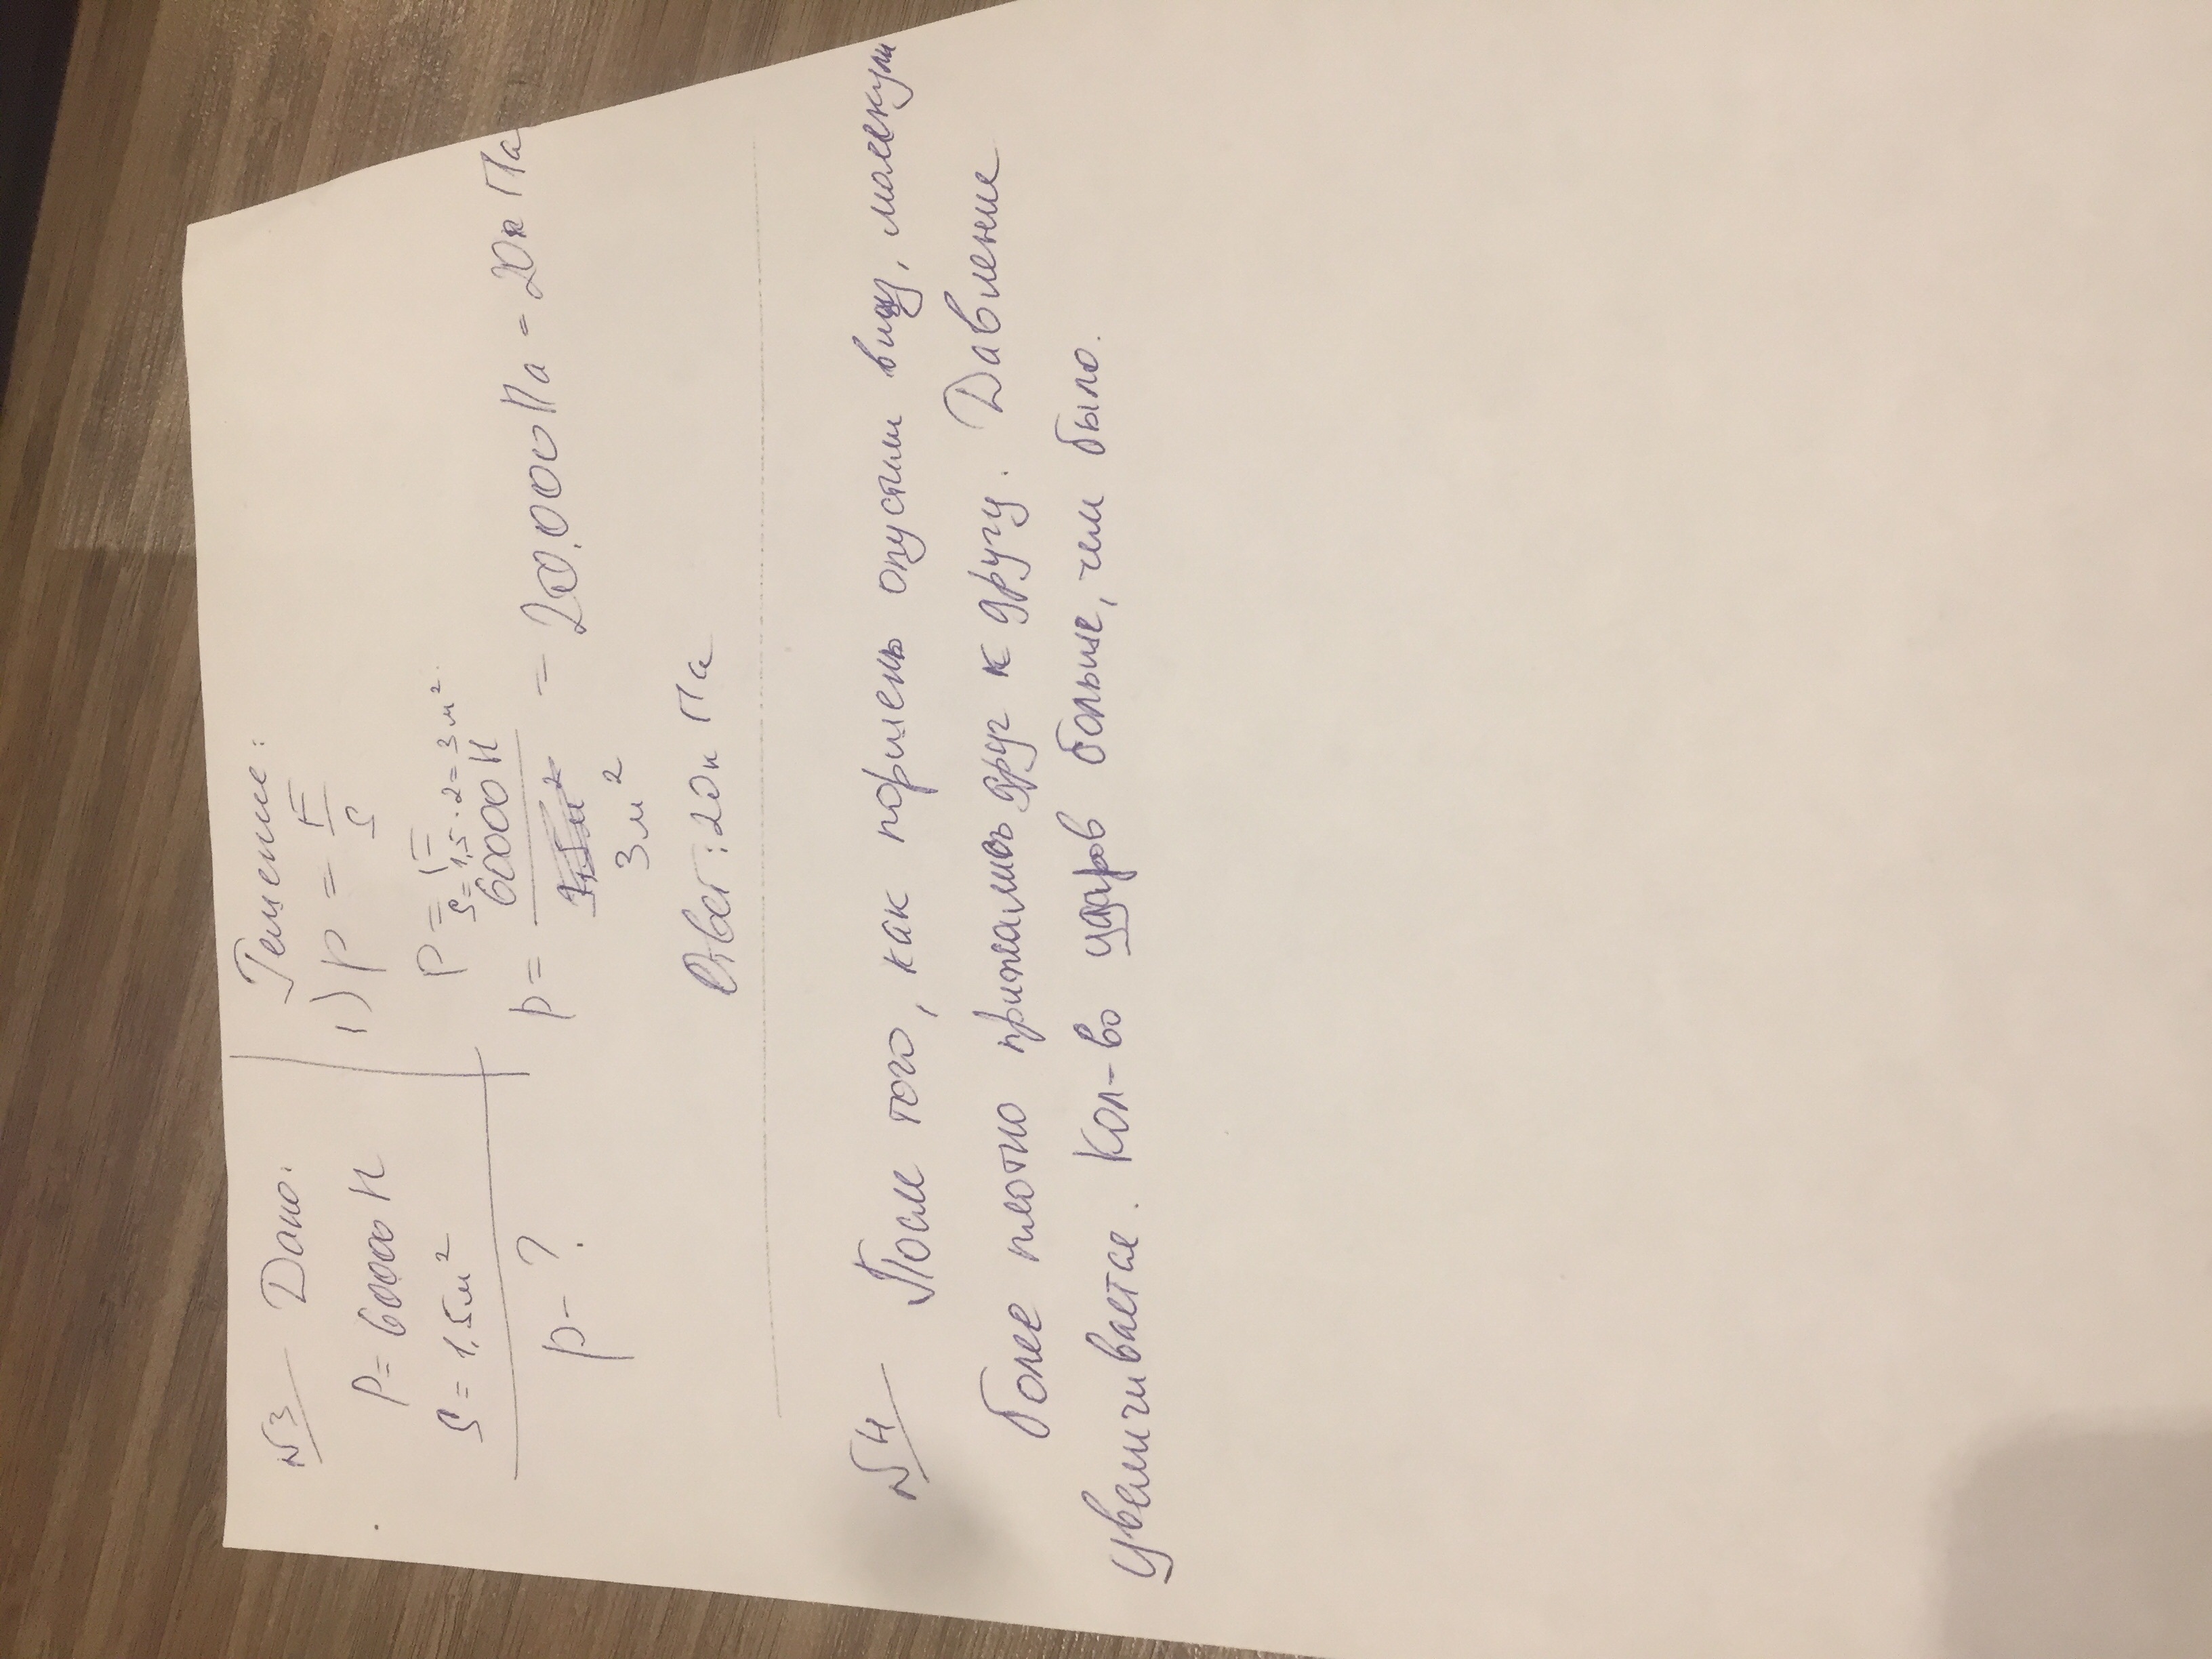 №3 Дано:
P = 60000 Н
S = 1,5 м²
p - ?
Решение:
1) p = F/S
P = F
S = 1,5 · 2 = 3 м²
p = 60000 Н / 3 м² = 20.000 Па = 20 к Па
Ответ: 20 к Па
№4 После того, как поршень опустили вниз, молекулы
более плотно прижались друг к другу. Давление
увеличивается. Кол-во ударов больше, чем было.